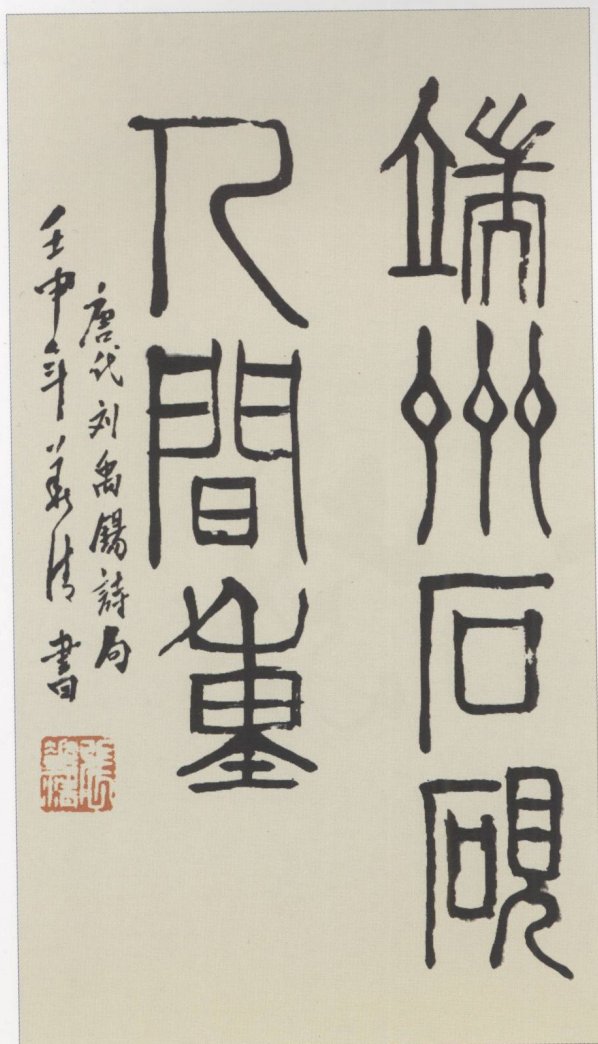 端州石硯
人間重
唐代刘禹錫詩句
壬申年 清書